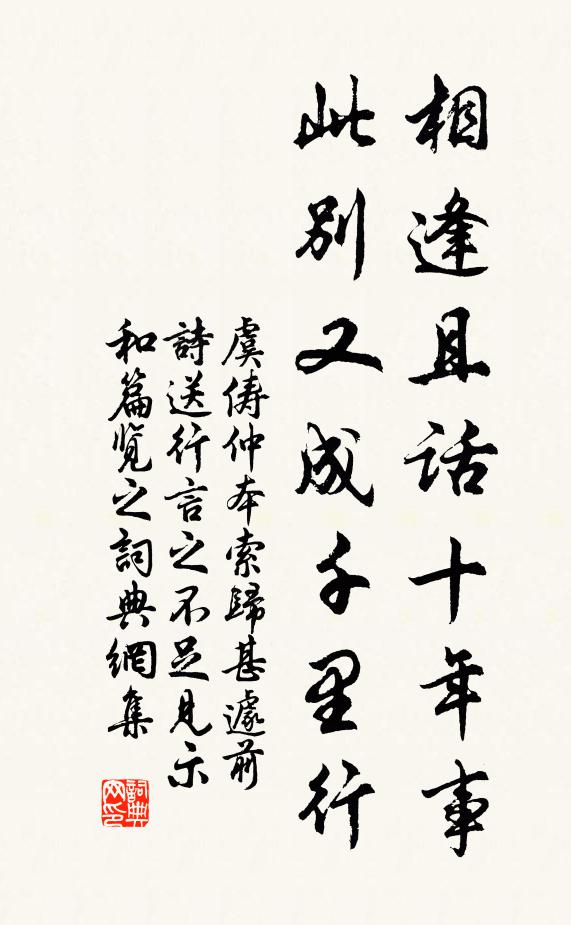 相逢且话十年事
此别又成千里行
虞俦仲本索歸甚遽前
詩送行言之不足見示
和篇览之詞典網集
詞典网印